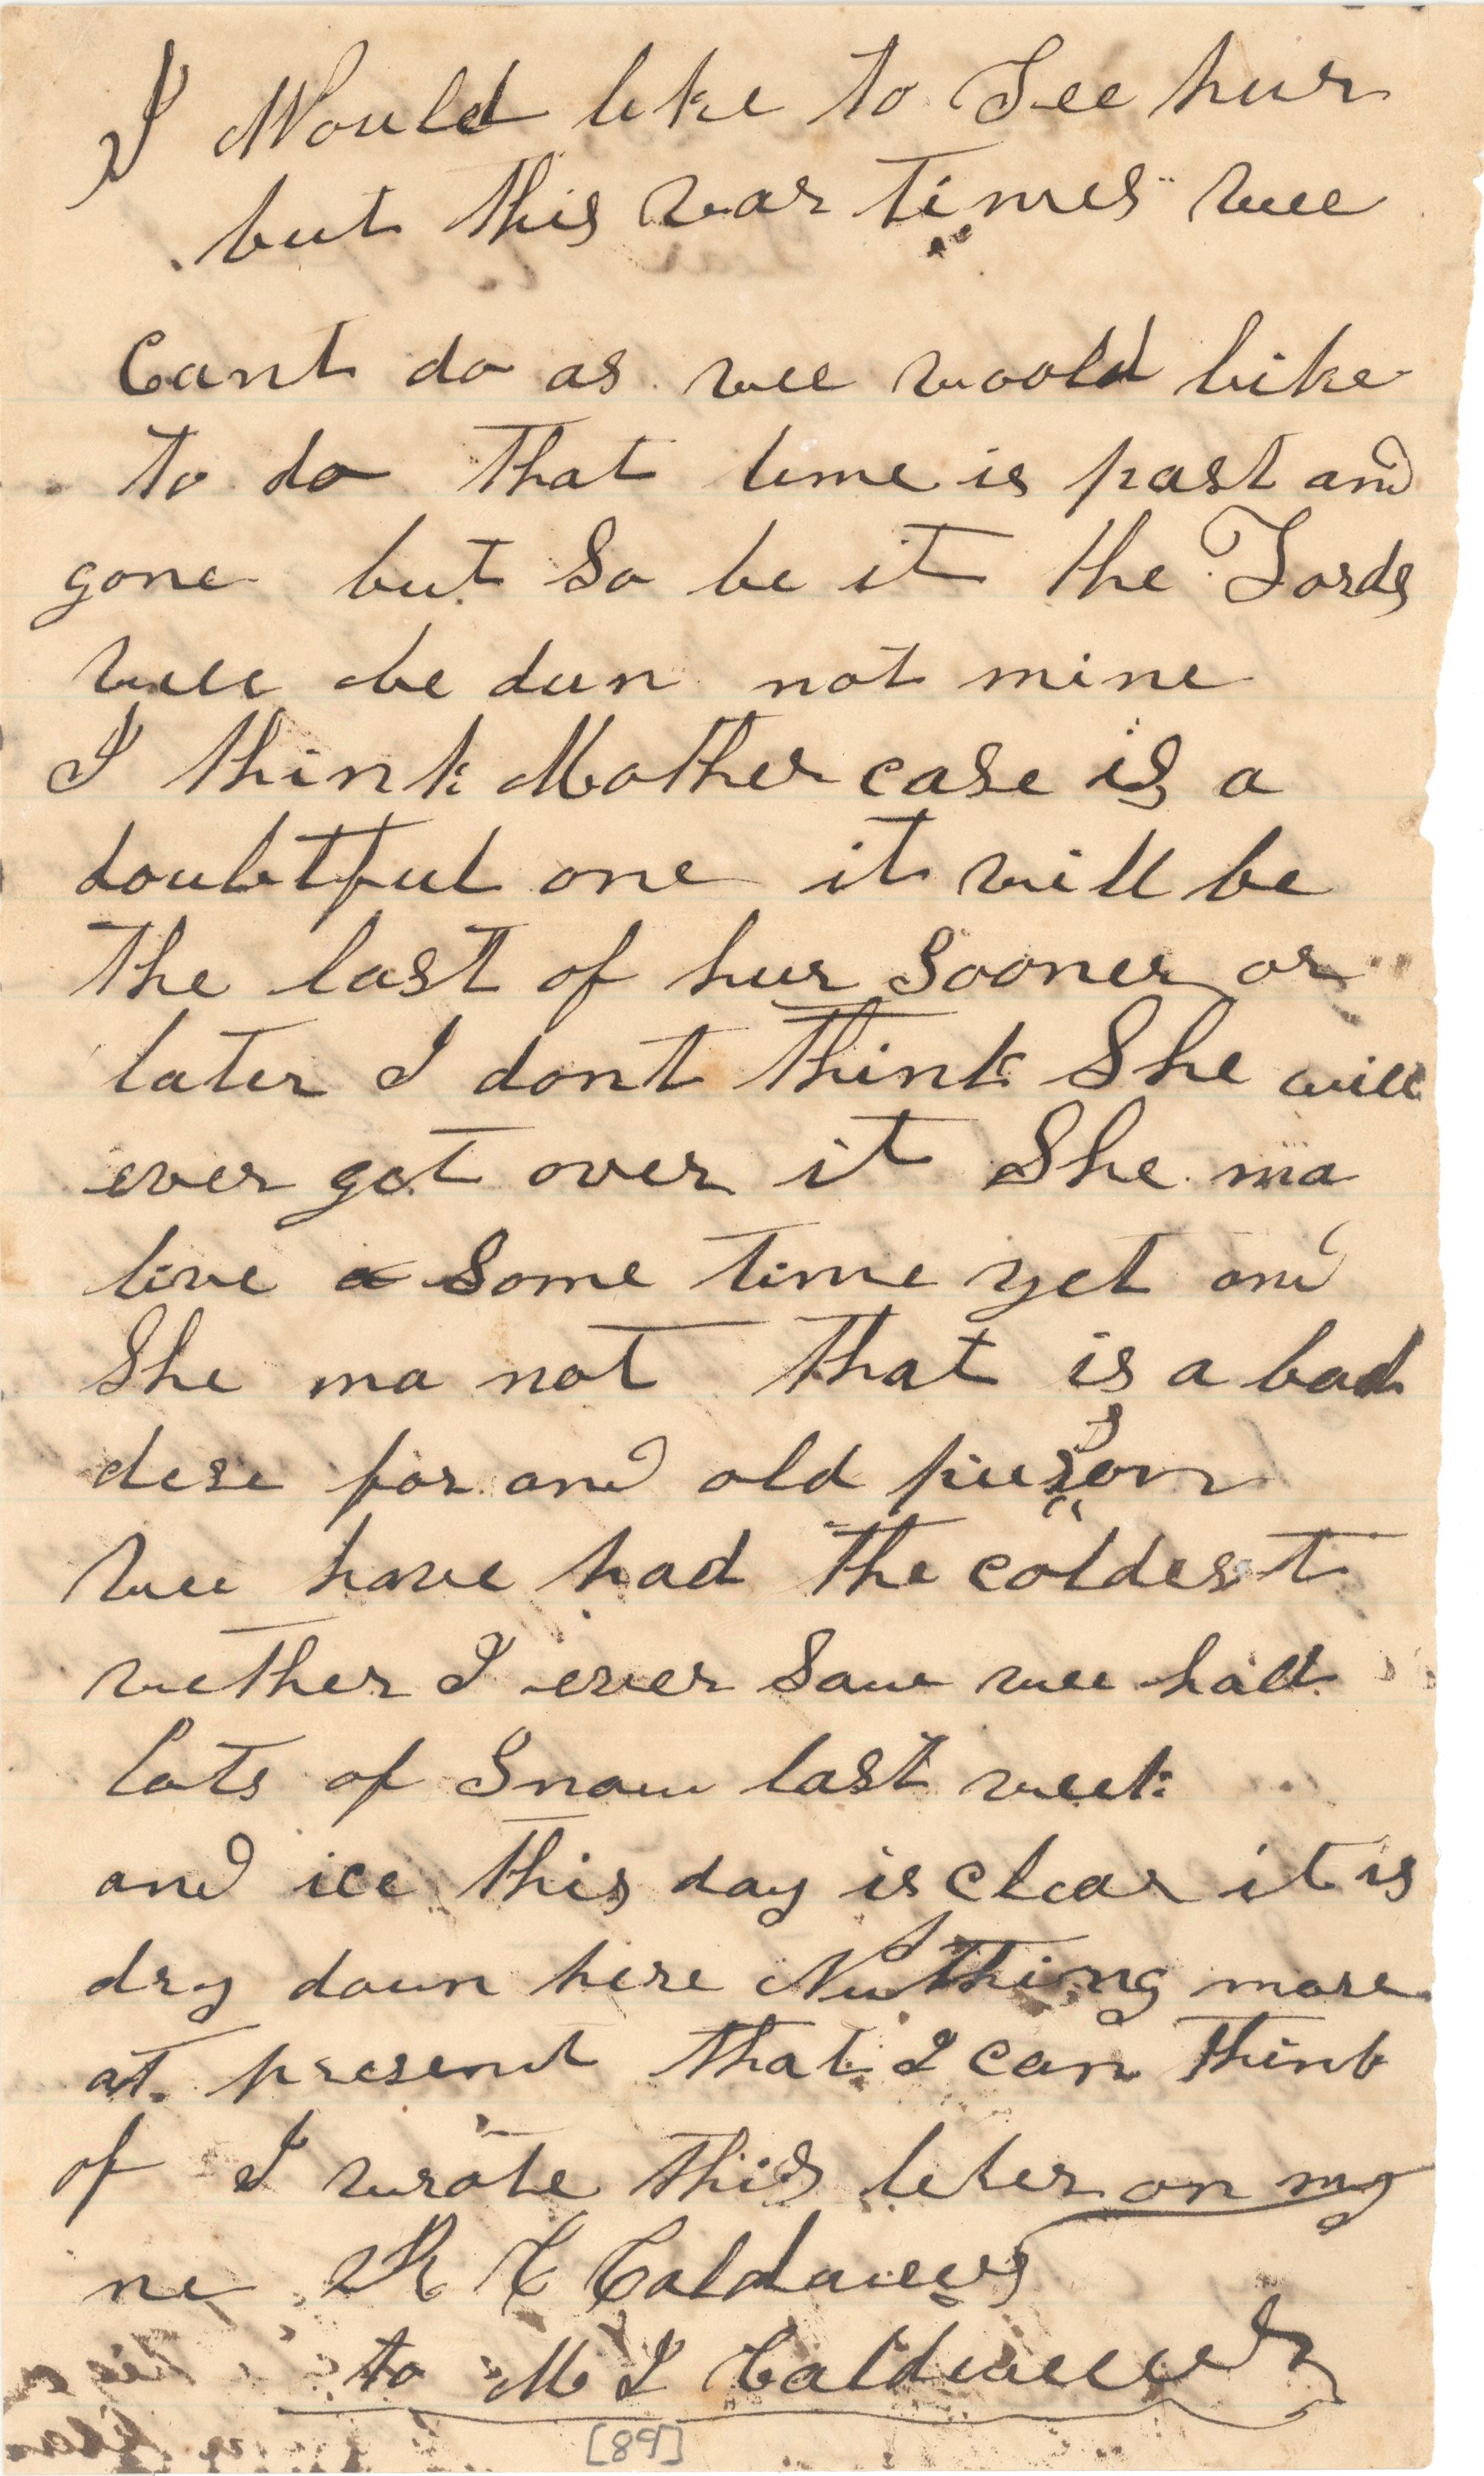 I Would like to See hur
but this war times wee
Cant do as wee woold like
to do that time is past and
gone but So be it the Lords
will be dun not mine
I think Mother case is a
doubtful one it will be
the last of hur Sooner or
later I dont think She will
ever get over it She ma
live a Some time yet and
She ma not that is a bad
dese for and old purson
wee have had the coldest
wether I ever Saw wee had
lots of Snow last week
and ice this day is clear it is
dry down here Nuthing more
at present that I can think
of I wrote this leter on my
ne
to M I Caldwell
[89]